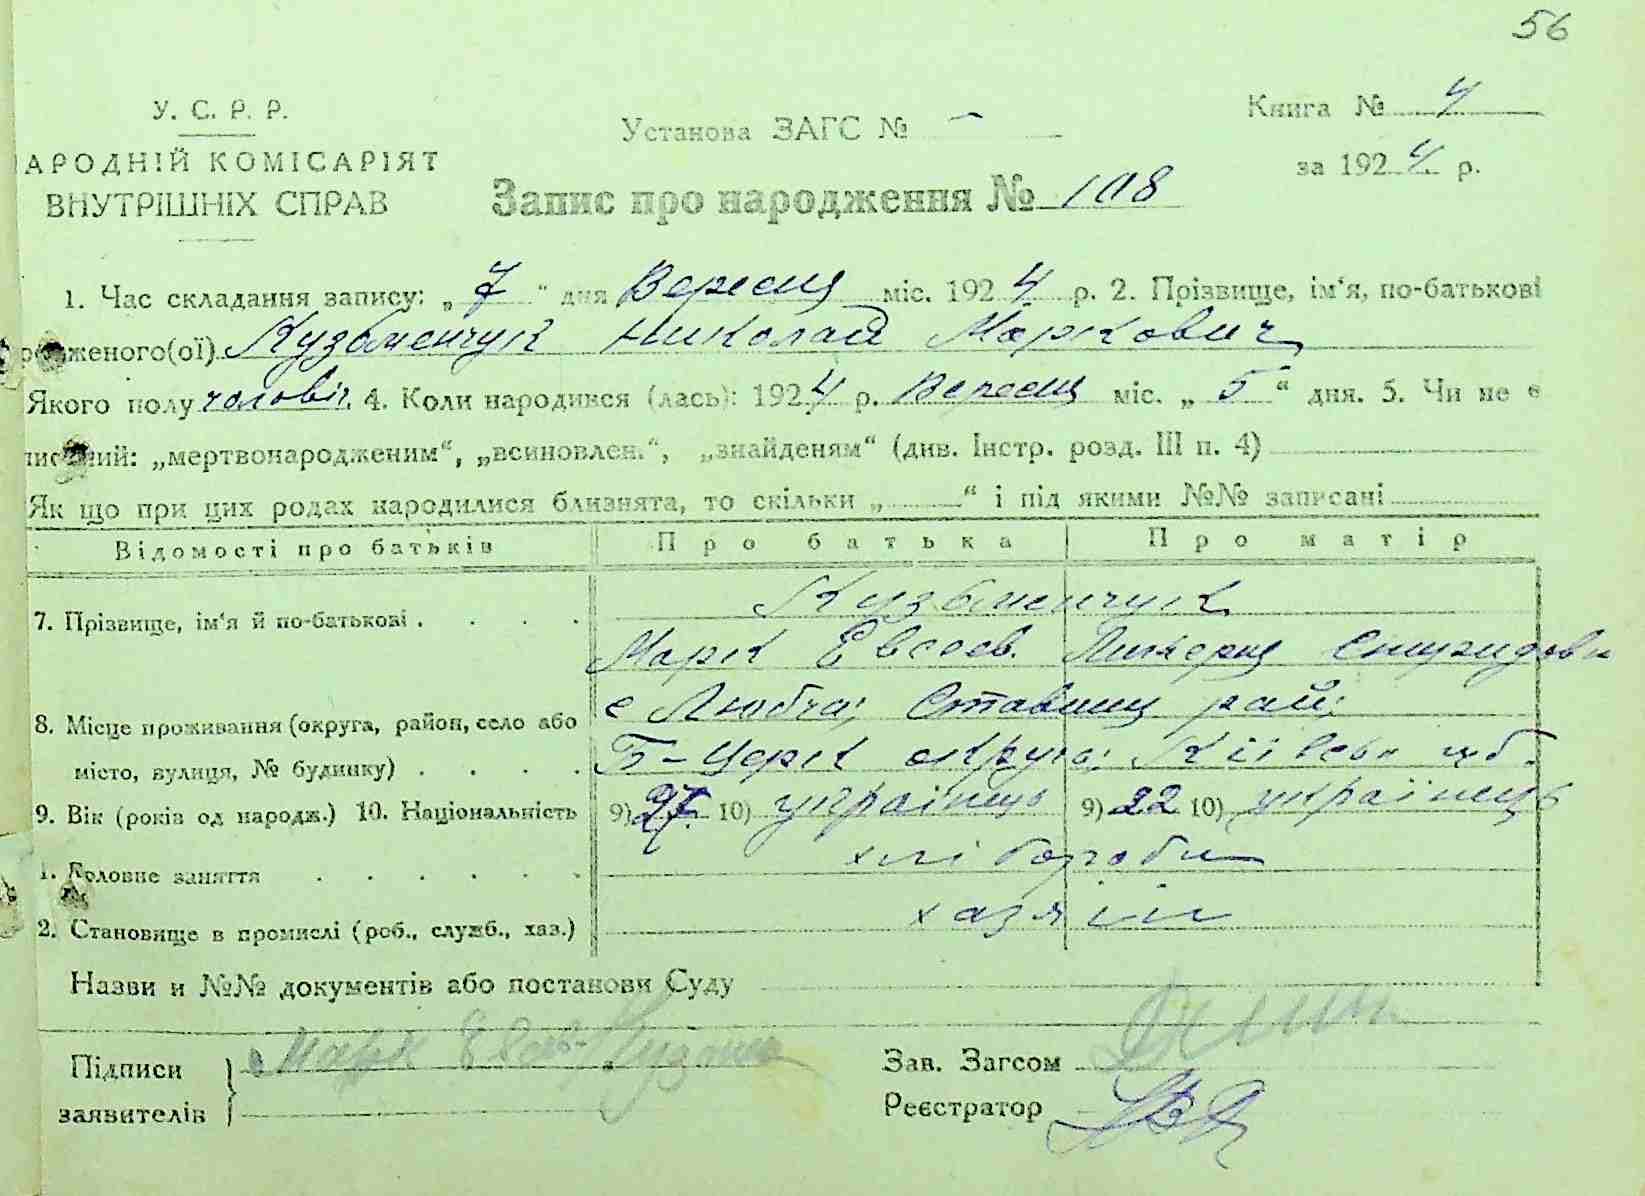 56
У. С. Р. Р.
АРОДНІЙ КОМІСАРІЯТ
ВНУТРІШНІХ СПРАВ
Установа ЗАГС № –
Книга № 4
за 1924 р.
Запис про народження № 108
1. Час складання запису: „7“ дня Вересня міс. 1924 р. 2. Прізвище, ім‘я, по-батькові
женого(ої) Кузьменчук Николай Маркович
Якого полу чоловіч. 4. Коли народився (лась): 1924 р. Вересня міс. „5“ дня. 5. Чи не є
ний: „мертвонародженим“, „всиновлен.“, „знайденям“ (див. Інстр. розд. III п. 4)
Як що при цих родах народилися близнята, то скільки „ “ і під якими №№ записані
Відомості про батьків Про батька Про матір
7. Прізвище, ім‘я й по-батькові . . . . Кузьменчук
Марк Евсеев.
8. Місце проживання (округа, район, село або с Любча; Ставищ рай;
місто, вулиця, № будинку) . . . . Б-Церк округа; Київськ губ.
9. Вік (років од народж.) 10. Національність 9) 27 10) українець 9) 22 10) українець
1. Головне заняття . . . . . . хлібороби
2. Становище в промислі (роб., служб., хаз.) хазяїн
Назви и №№ документів або постанови Суду
Підписи заявителів } Марк
Зав. Загсом
Реєстратор